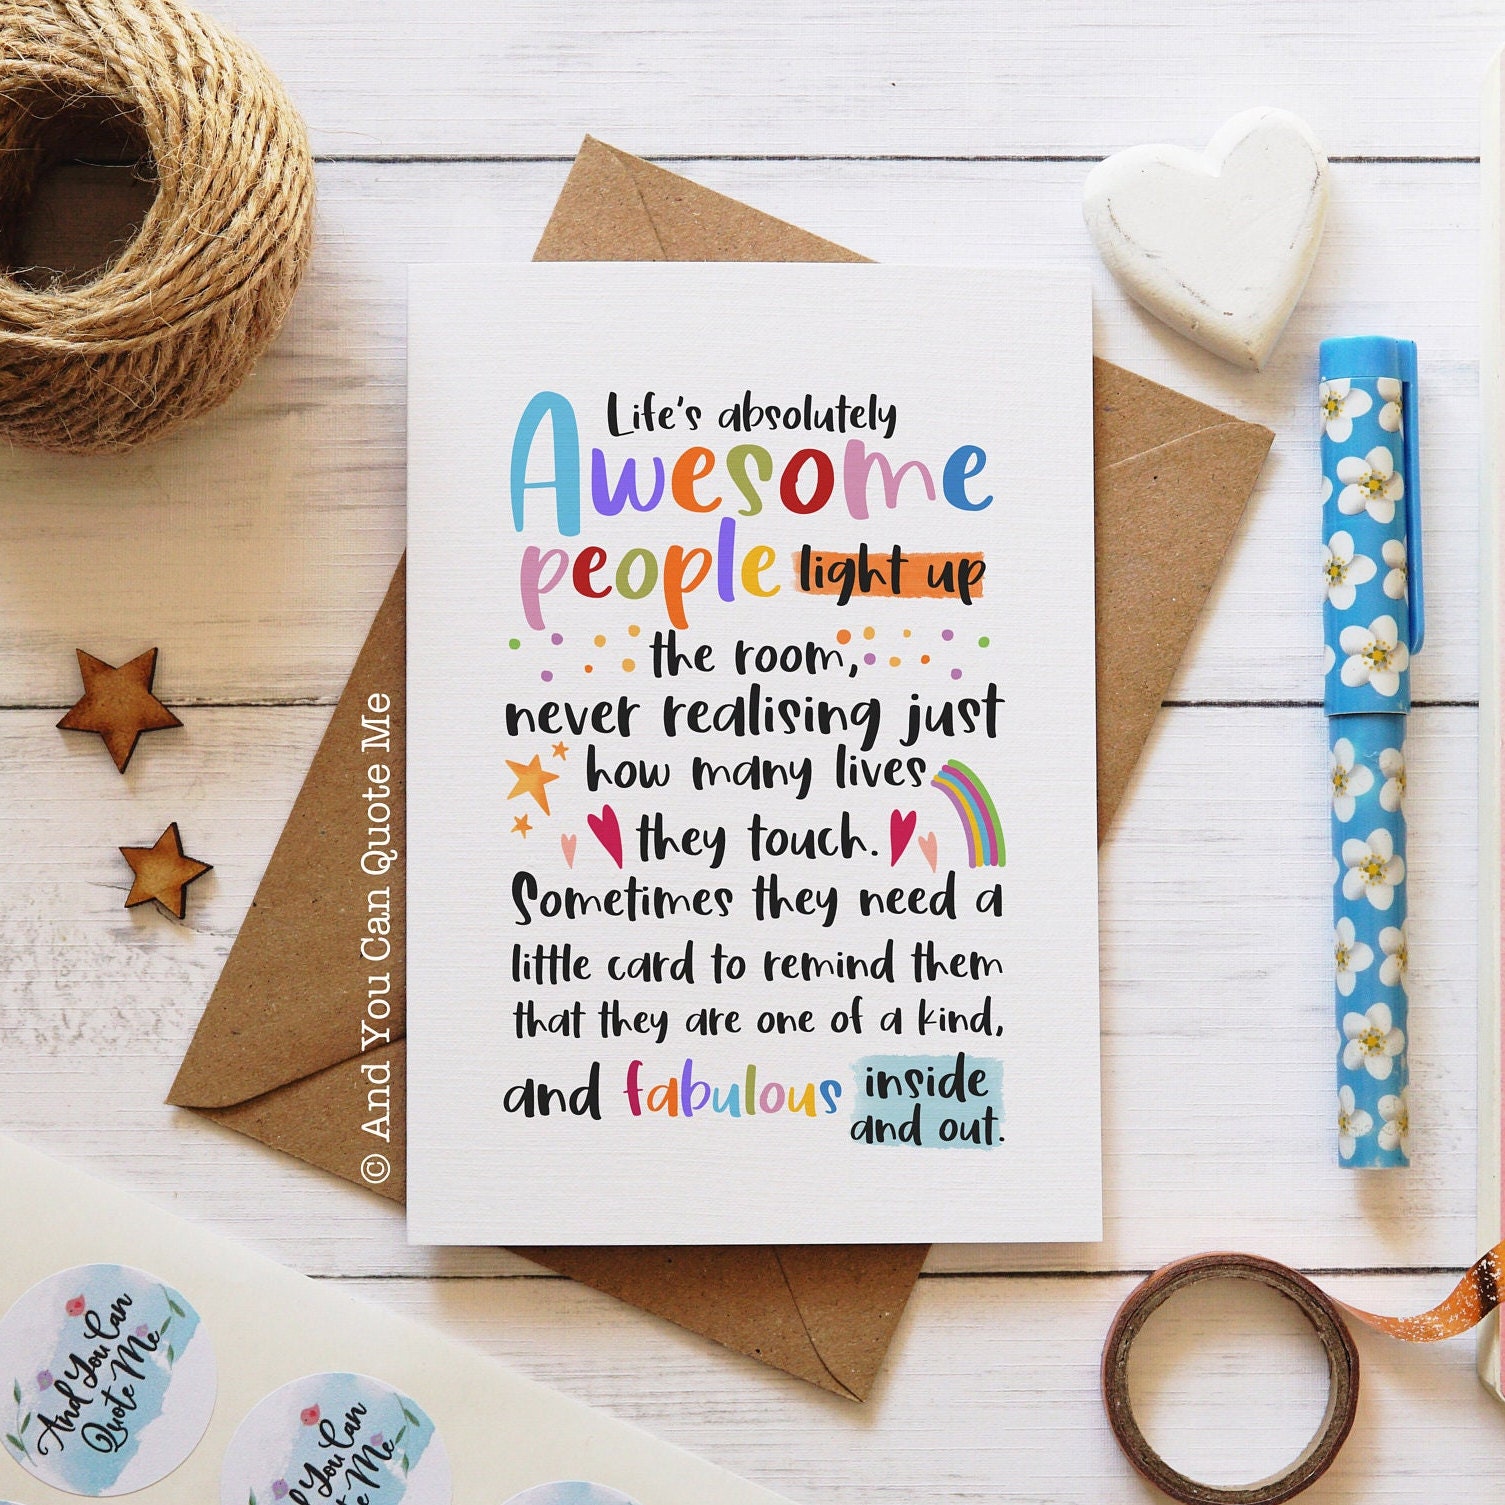 Life's absolutely
Awesome
people light up
the room,
never realising just
how many lives
they touch.
Sometimes they need a
little card to remind them
that they are one of a kind,
and fabulous inside
and out.
© And You Can Quote Me
And You Can
Quote Me
You Can
Me